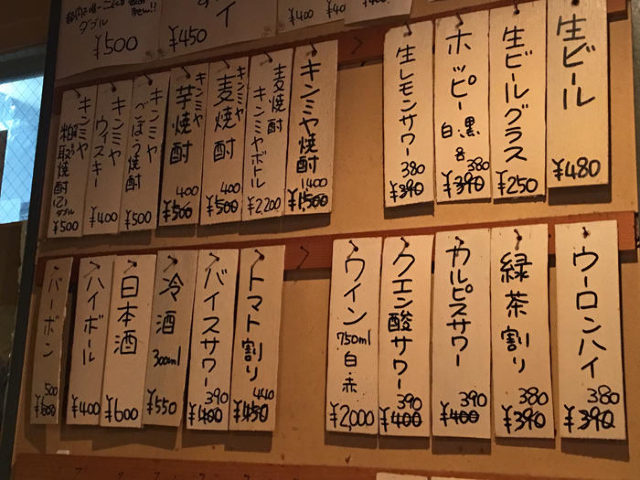 ダブル
¥500
イ
¥450
400
¥400
¥400
生ビール
¥480
生ビールグラス
¥250
ホッピー
白・黒
各
380
¥390
生レモンサワー
380
¥390
キンミヤ焼酎
1400
¥1,500
麦焼酎
キンミヤボトル
¥2,200
キンミヤ
麦焼酎
400
¥500
キンミヤ
芋焼酎
400
¥500
キンミヤ
ごぼう焼酎
¥500
キンミヤ
ウイスキー
¥400
キンミヤ
粕取焼酎(乙)
ダブル
¥500
ウーロンハイ
380
¥390
緑茶割り
380
¥390
カルピスサワー
390
¥400
クエン酸サワー
390
¥400
ワイン
750ml
白・赤
¥2,000
トマト割り
440
¥450
バイスサワー
390
¥400
冷酒
300ml
¥550
日本酒
¥600
ハイボール
¥400
バーボン
500